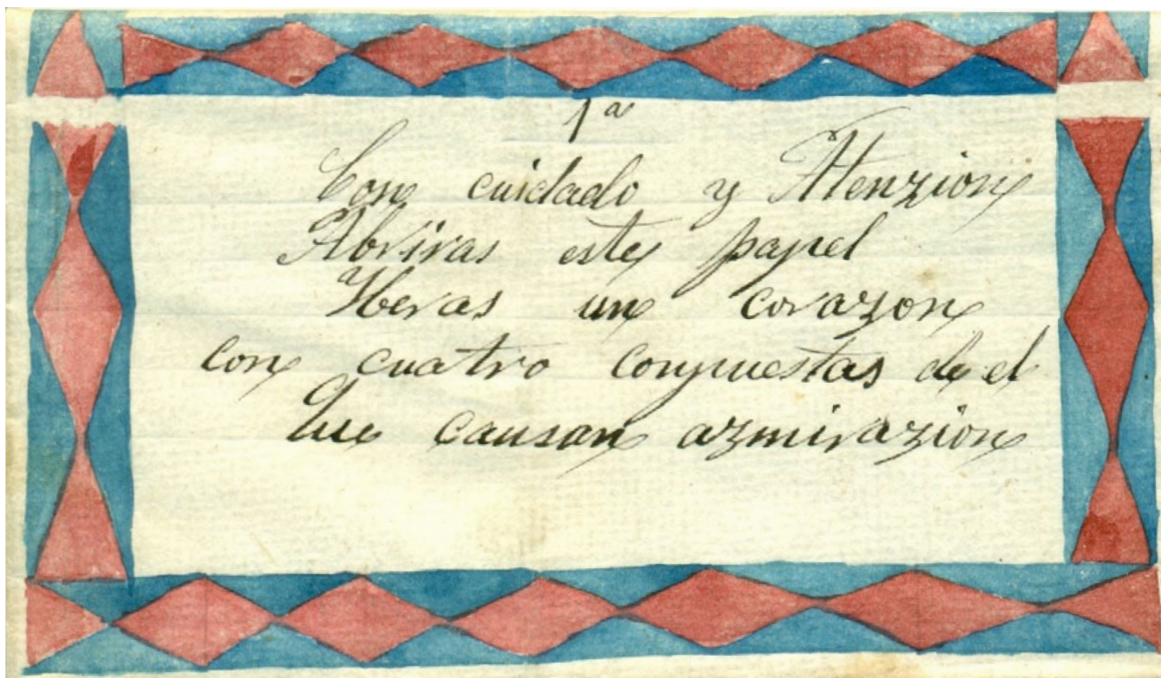 1ª
Con cuidado y Atenzion
Abriras este papel
Yberas un corazon
con cuatro conpuestas de el
Que causan azmirazion